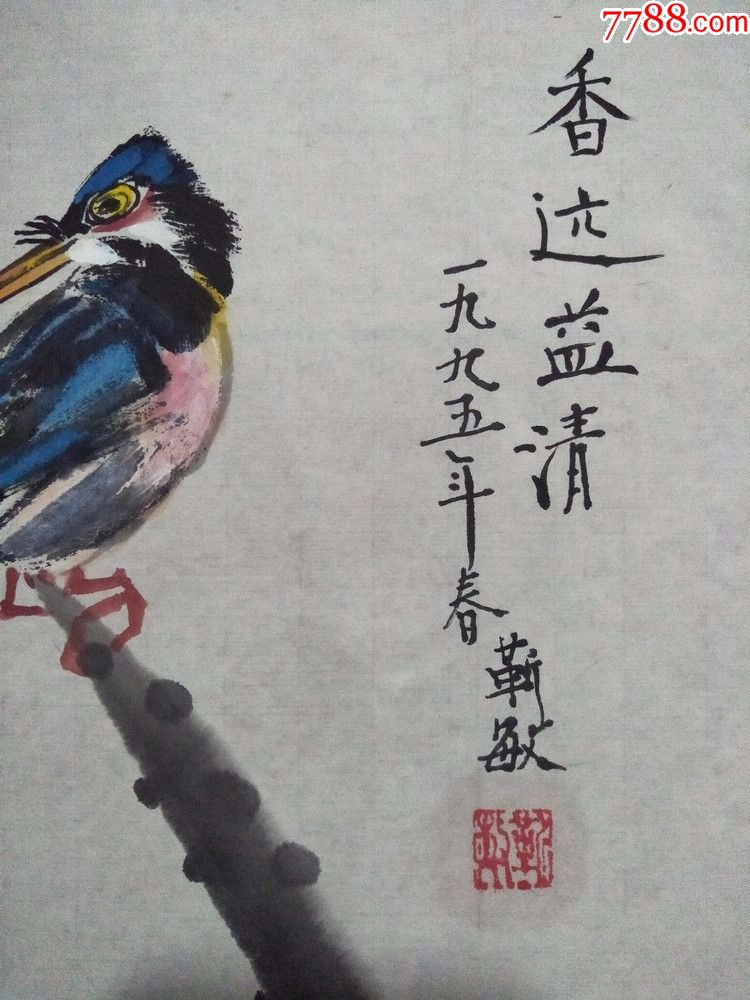 7788.com
香远益清
一九九五年春
靳敏
靳敏